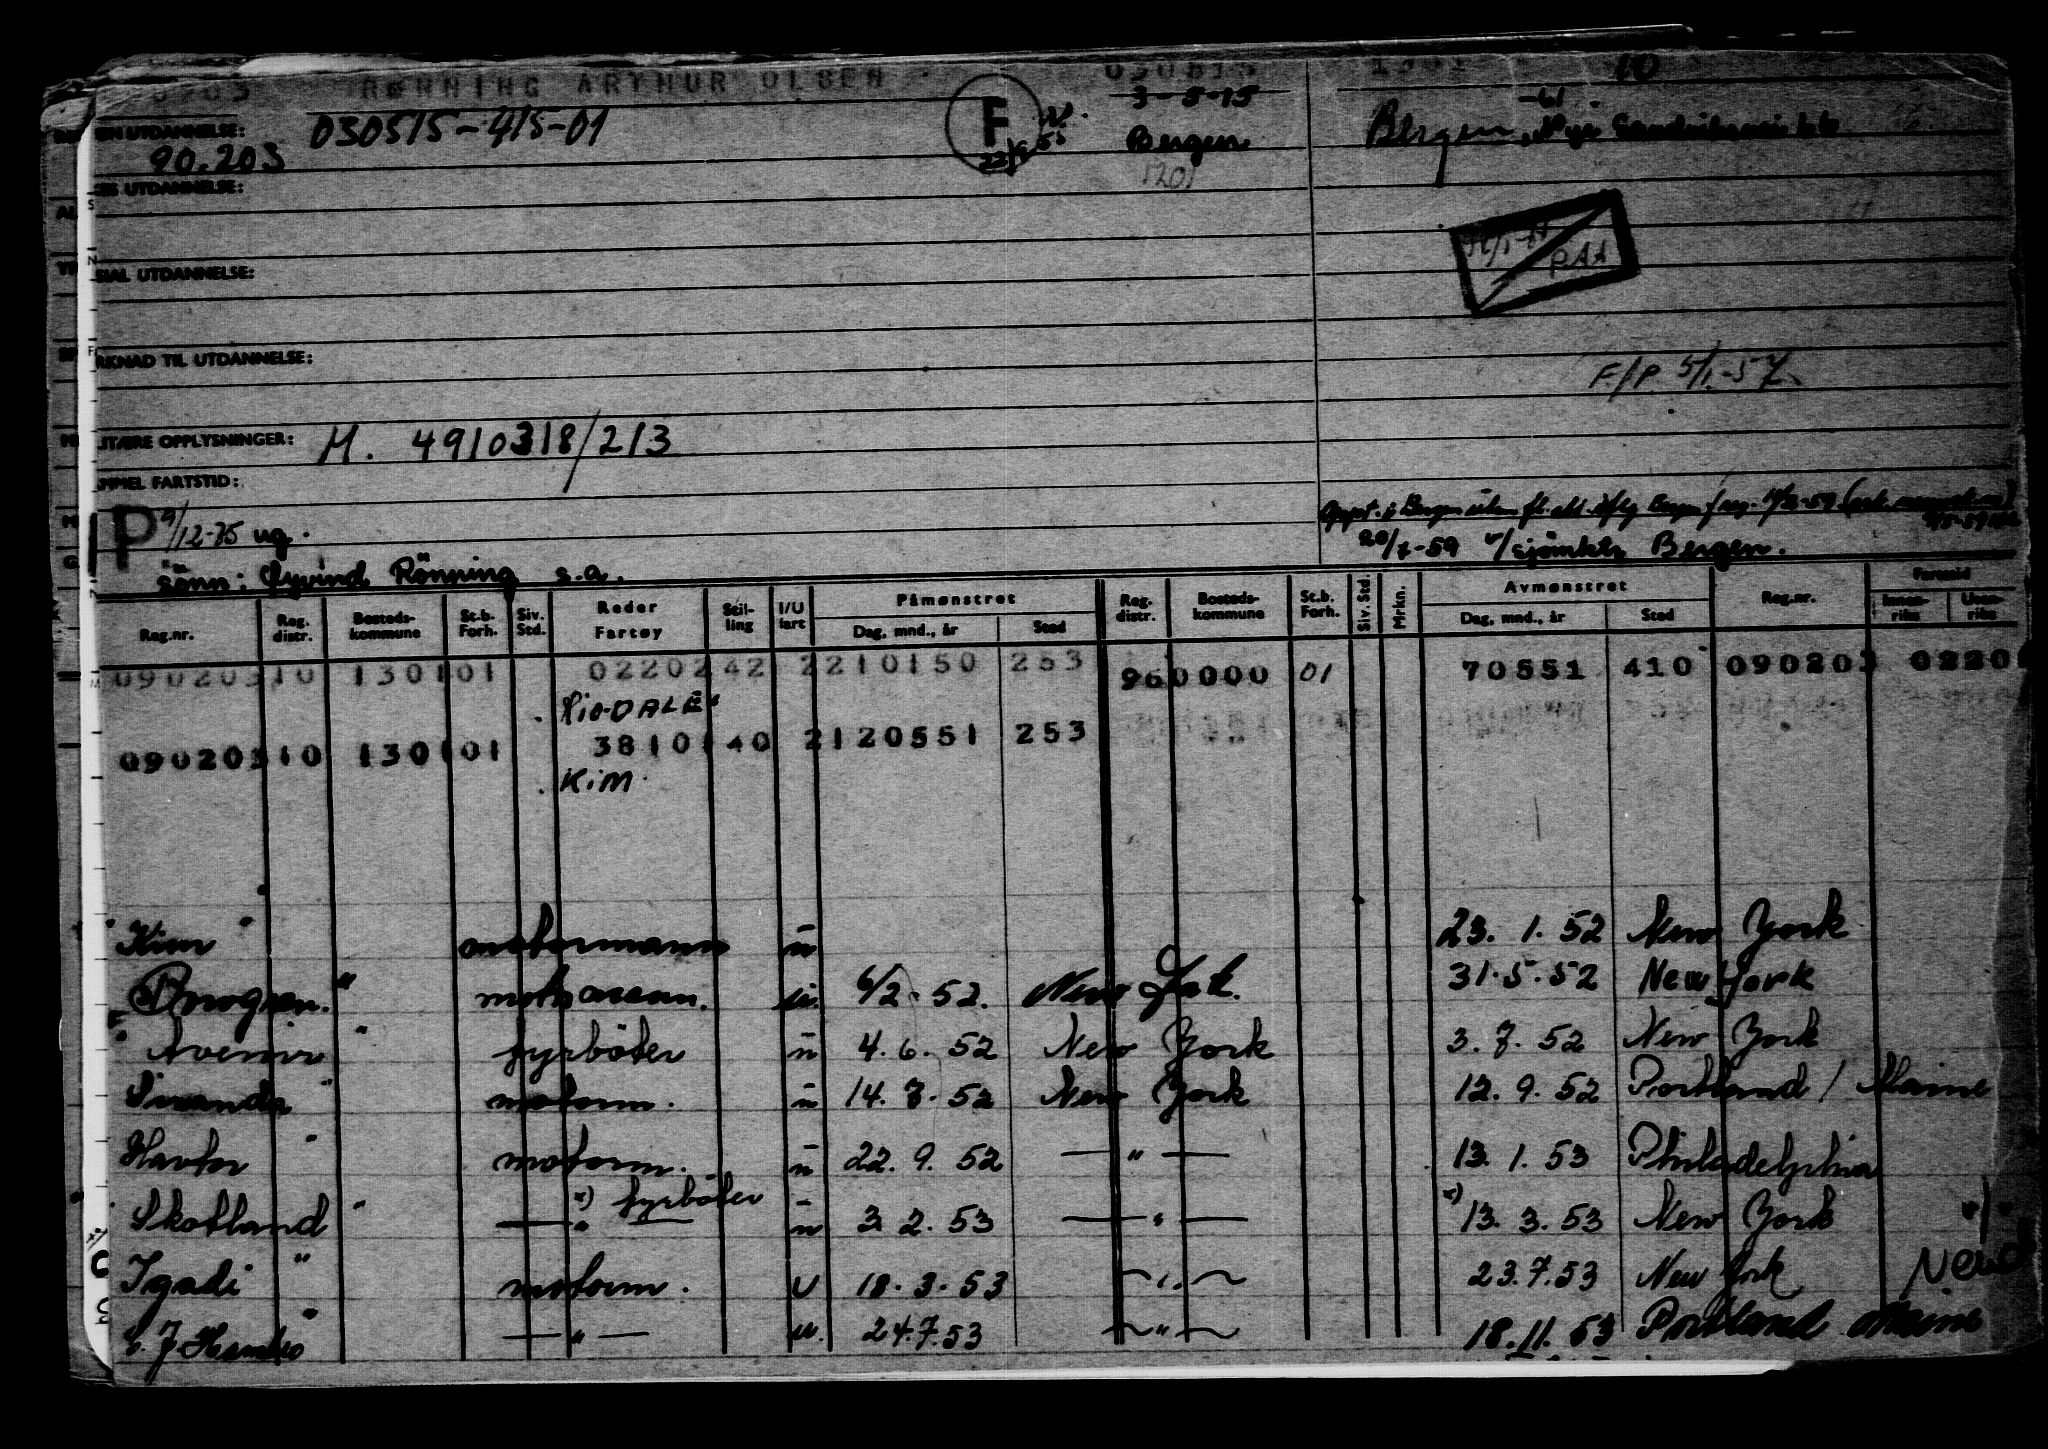 RØNNING ARTHUR OLSEN 030515 1301 10
3-5-15 -61
EN UTDANNELSE: 030515-415-01 F Bergen Bergen, Nye Sandviksvei
90.203 1201
UTDANNELSE:
SIAL UTDANNELSE: PAA
RKNAD TIL UTDANNELSE: F/P 5/1-57
ITÆRE OPPLYSNINGER: M. 4910318/213
MMEL FARTSTID:
P 9/12-75 ug.
20/7-59 v/sjömktr Bergen.
sønn: Øyvind Rönning s.a.
Reg.nr. Reg. distr. Bosteds-kommune St.b. Forh. Siv. Std. Reder Fartøy Stil-ling I/U fart Påmønstret Dag, mnd., år Sted Reg. distr. Bosteds-kommune St.b. Forh. Siv. Std. Mrkn. Avmønstret Dag, mnd., år Sted Reg.nr. Fartstid Innen-riks Uten-riks
090203 10 1301 01 02202 42 2 210150 253 960000 01 70551 410 090203 0220
Rio-DALE"
090203 10 1301 01 38101 40 2 120551 253
KiM
"Kim" motormann u 23. 1. 52 New York
motormann. u. 6/2-52. New York. 31.5.52 New York
"Avenir" fyrböter u 4. 6. 52 New York 3. 7. 52 New York
motorm. u 14. 7. 52 New York 12. 9. 52 Portland / Maine
Havtor " motorm. u 22. 9. 52 — " — 13. 1. 53 Philadelphia
"Skotland" — " — x) fyrböter u 3. 2. 53 — " — x) 13. 3. 53 New York
Igadi " motorm. u 18. 3. 53 — " — 23.7.53 New York
C. J. Hambro " — " — u. 24.7.53 — " — 18.11.53 Portland Maine